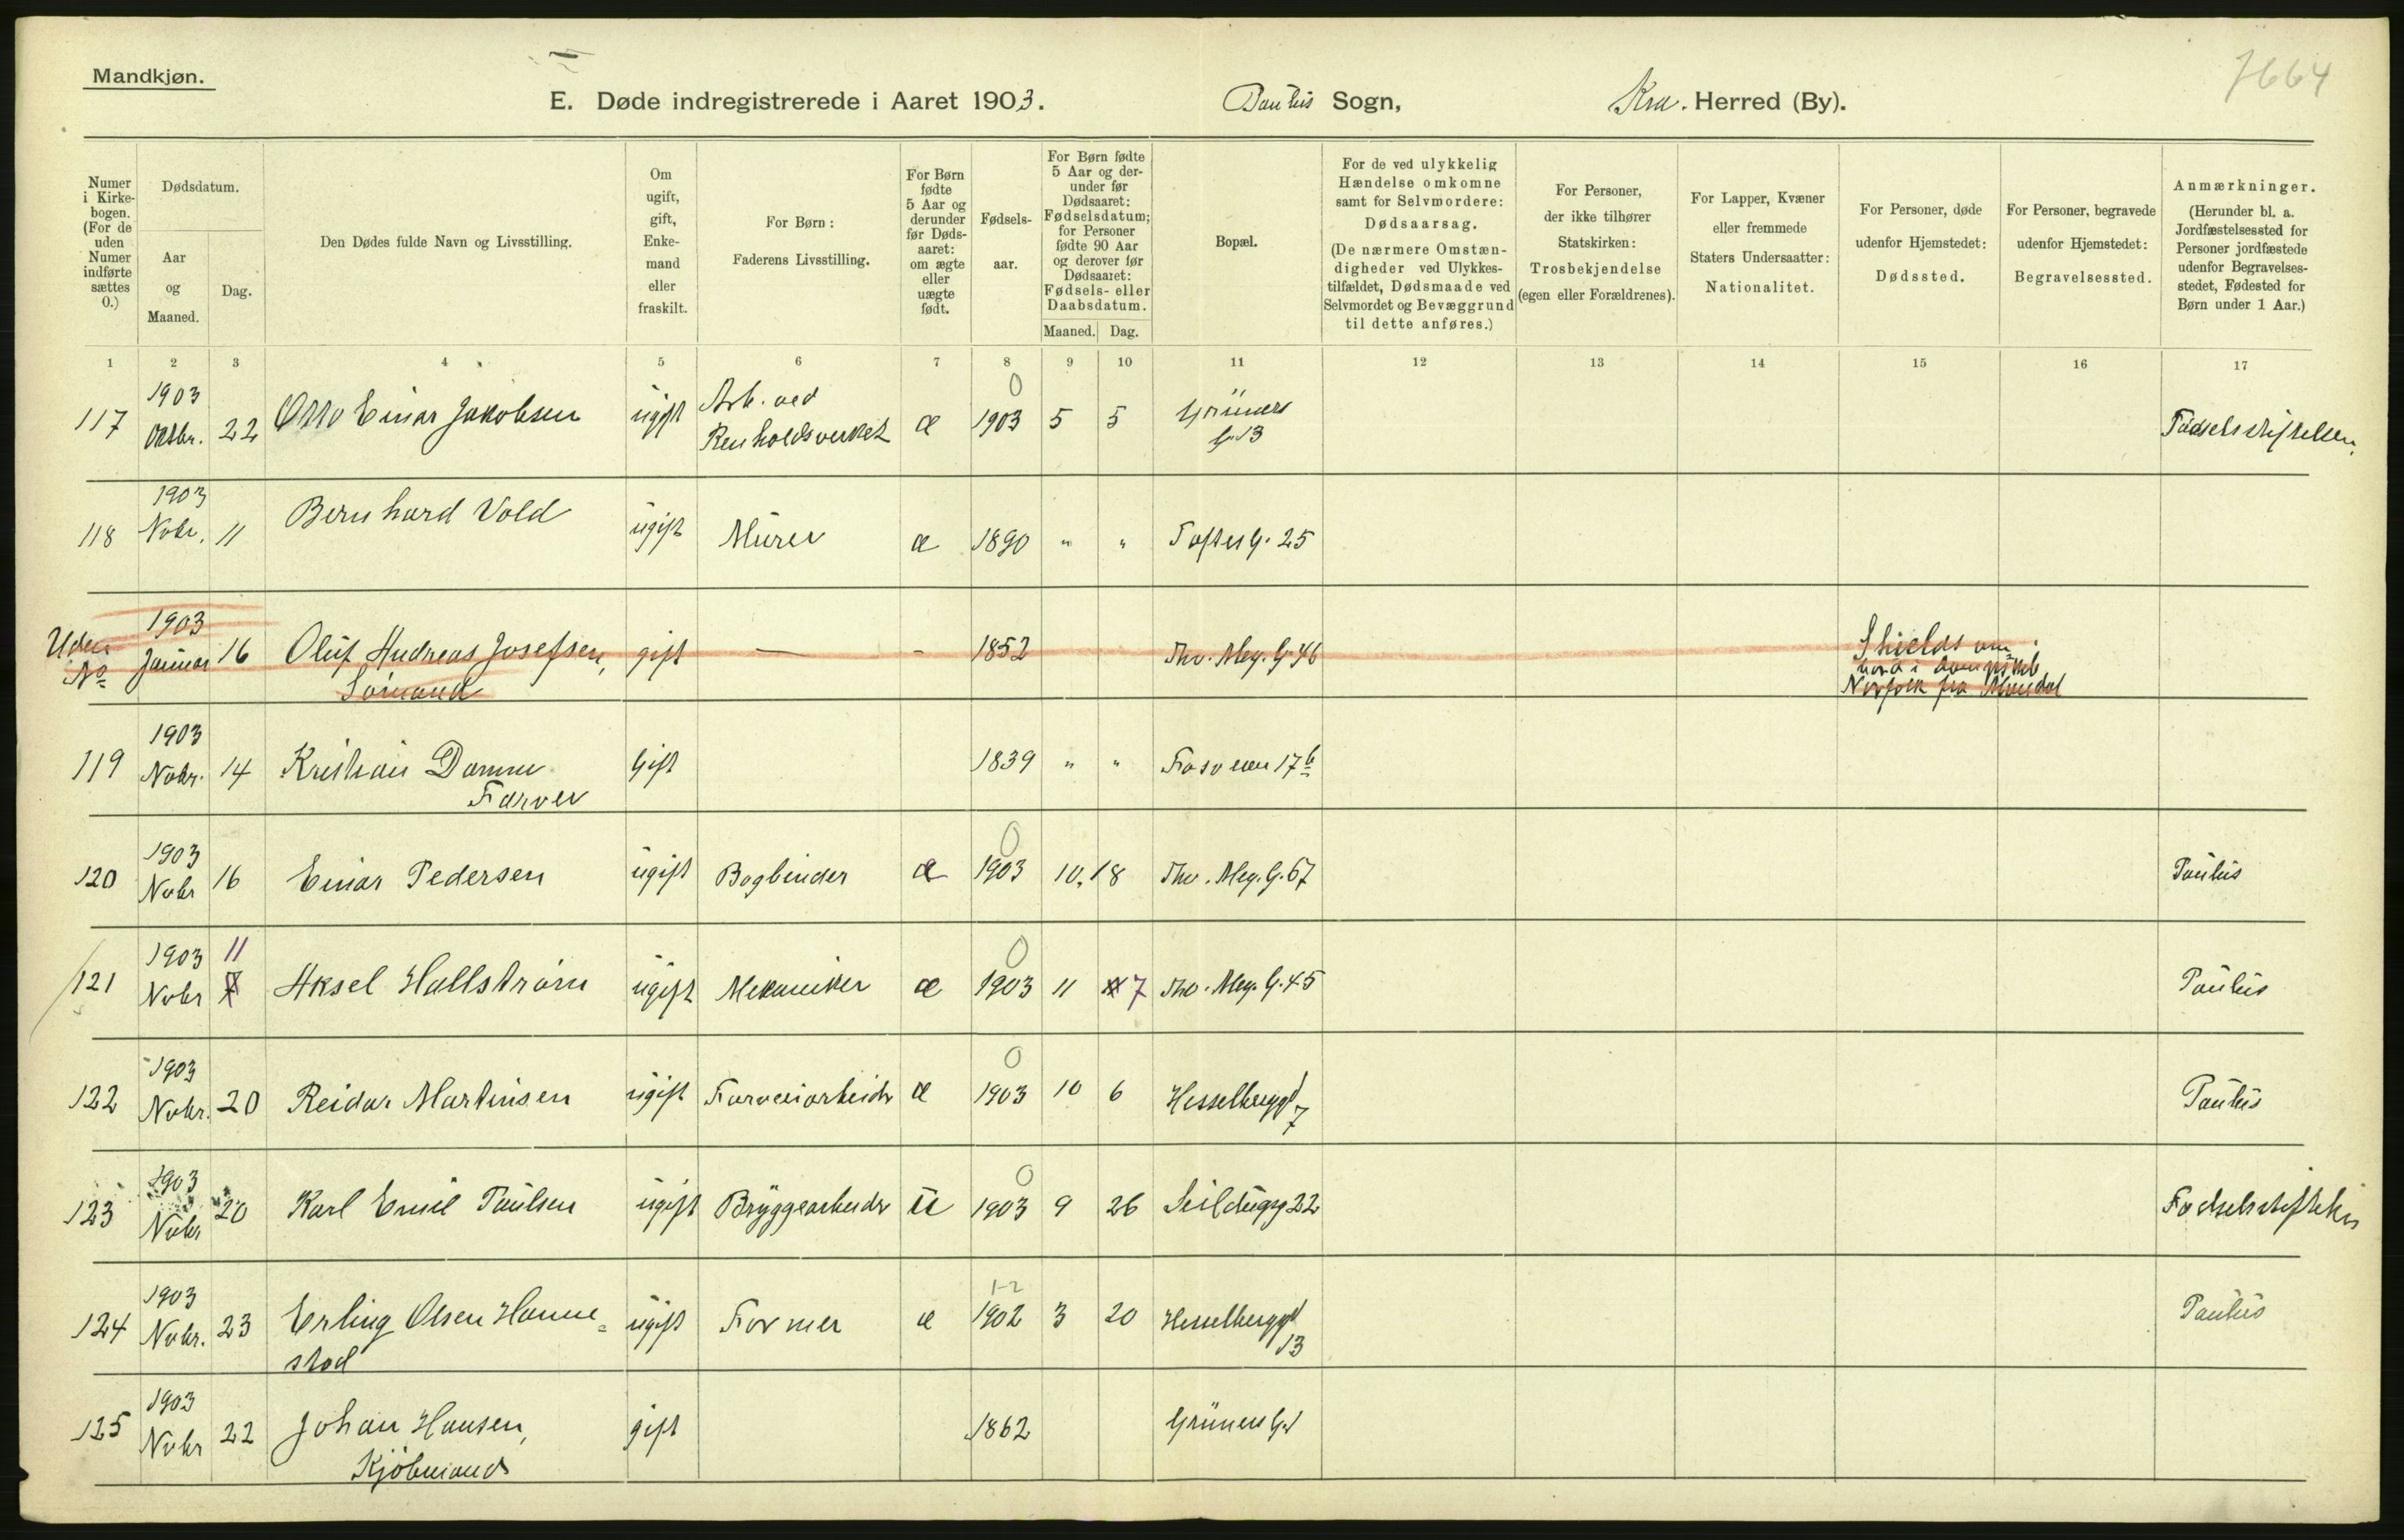 Mandkjøn.
7664
E. Døde indregistrerede i Aaret 1903.
Paulus Sogn,
Kra. Herred (By).
Numer i Kirkebogen. (For de uden Numer indførte sættes 0.)
Dødsdatum.
Aar og Maaned.
Dag.
Den Dødes fulde Navn og Livsstilling.
Om ugift, gift, Enkemand eller fraskilt.
For Børn: Faderens Livsstilling.
For Børn fødte 5 Aar og derunder før Dødsaaret: om ægte eller uægte født.
Fødselsaar.
For Børn fødte 5 Aar og derunder før Dødsaaret: Fødselsdatum; for Personer fødte 90 Aar og derover før Dødsaaret: Fødsels- eller Daabsdatum.
Maaned. Dag.
Bopæl.
For de ved ulykkelig Hændelse omkomne samt for Selvmordere: Dødsaarsag. (De nærmere Omstændigheder ved Ulykkestilfældet, Dødsmaade ved Selvmordet og Bevæggrund til dette anføres.)
For Personer, der ikke tilhører Statskirken: Trosbekjendelse (egen eller Forældrenes).
For Lapper, Kvæner eller fremmede Staters Undersaatter: Nationalitet.
For Personer, døde udenfor Hjemstedet: Dødssted.
For Personer, begravede udenfor Hjemstedet: Begravelsessted.
Anmærkninger. (Herunder bl. a. Jordfæstelsessted for Personer jordfæstede udenfor Begravelsesstedet, Fødested for Børn under 1 Aar.)
1 2 3 4 5 6 7 8 9 10 11 12 13 14 15 16 17
117 1903 Oktbr. 22 Otto Einar Jakobsen ugift Arb. ved Renholdsverket æ 0 1903 5 5 Grüners G. 13 Fødselsstiftelsen.
118 1903 Nvbr. 11 Bernhard Vold ugift Murer æ 1890 " " Toftes G. 25
Uden No 1903 Januar 16 Oluf Andreas Josefsen, Sømand gift — - 1852 Thv. Mey. G. 46 Shields om bord i Norfolk fra Mandal
119 1903 Nvbr. 14 Kristian Damm Farver Gift 1839 " " Fossveien 17 b
120 1903 Nvbr 16 Einar Pedersen ugift Bogbinder æ 0 1903 10. 18 Thv. Mey. G. 67 Paulus
121 1903 Nvbr 11 Aksel Hallstrøm ugift Mekaniker æ 0 1903 11 7 Thv. Mey. G. 45 Paulus
122 1903 Nvbr. 20 Reidar Martinsen ugift Farveriarbeider æ 0 1903 10 6 Hesselbergg 7 Paulus
123 1903 Nvbr 20 Karl Emil Paulsen ugift Bryggearbeider u 0 1903 9 26 Seildugsg 22 Fødselsstiftelsen
124 1903 Nvbr. 23 Erling Olsen Hammestad ugift Former æ 1-2 1902 3 20 Hesselbergg 13 Paulus
125 1903 Nvbr 22 Johan Hansen, Kjøbmand gift 1862 Grüners G. 1